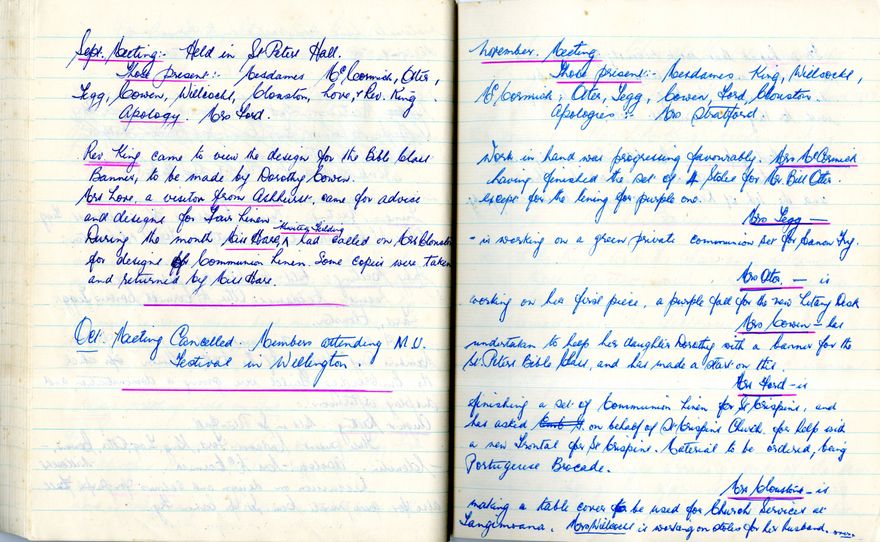 Sept. Meeting:- Held in St Peters Hall.
Those present:- Mesdames McCormick, Otter,
Tegg, Cowen, Willcocks, Clouston, Love, & Rev. King.
Apology. Mrs Ford.
Rev King came to view the design for the Bible Class
Banner, to be made by Dorothy Cowen.
Mrs Love, a visitor from Ashhurst, came for advice
and designs for Fair Linen.
During the month Miss Hare, had called on Mrs Clouston
for designs of Communion Linen. Some copies were taken
and returned by Miss Hare.
Oct. Meeting Cancelled. Members attending M.U.
Festival in Wellington.
November. Meeting
Those present:- Mesdames. King, Willcocks,
McCormick, Otter, Tegg, Cowen, Ford, Clouston.
Apologies:- Mrs Stratford.
Work in hand was progressing favourably. Mrs McCormick
having finished the set of 4 Stoles for Mr. Bill Otter.
except for the lining for purple one.
Mrs Tegg —
- is working on a green, private communion set for Canon Fry.
Mrs Otter. — is
working on her first piece, a purple fall for the new Litany Desk
Mrs Cowen — has
undertaken to help her daughter Dorothy with a banner for the
St. Peters Bible Class, and has made a start on this.
Mrs Ford - is
finishing a set of Communion Linen for St Crispins, and
has asked on behalf of St Crispins Church for help with
a new Frontal for St Crispins. Material to be ordered, being
Portuguese Brocade.
Mrs Clouston - is
making a table cover to be used for Church Services at
Tangimoana. Mrs Willcocks is working on stoles for her husband.